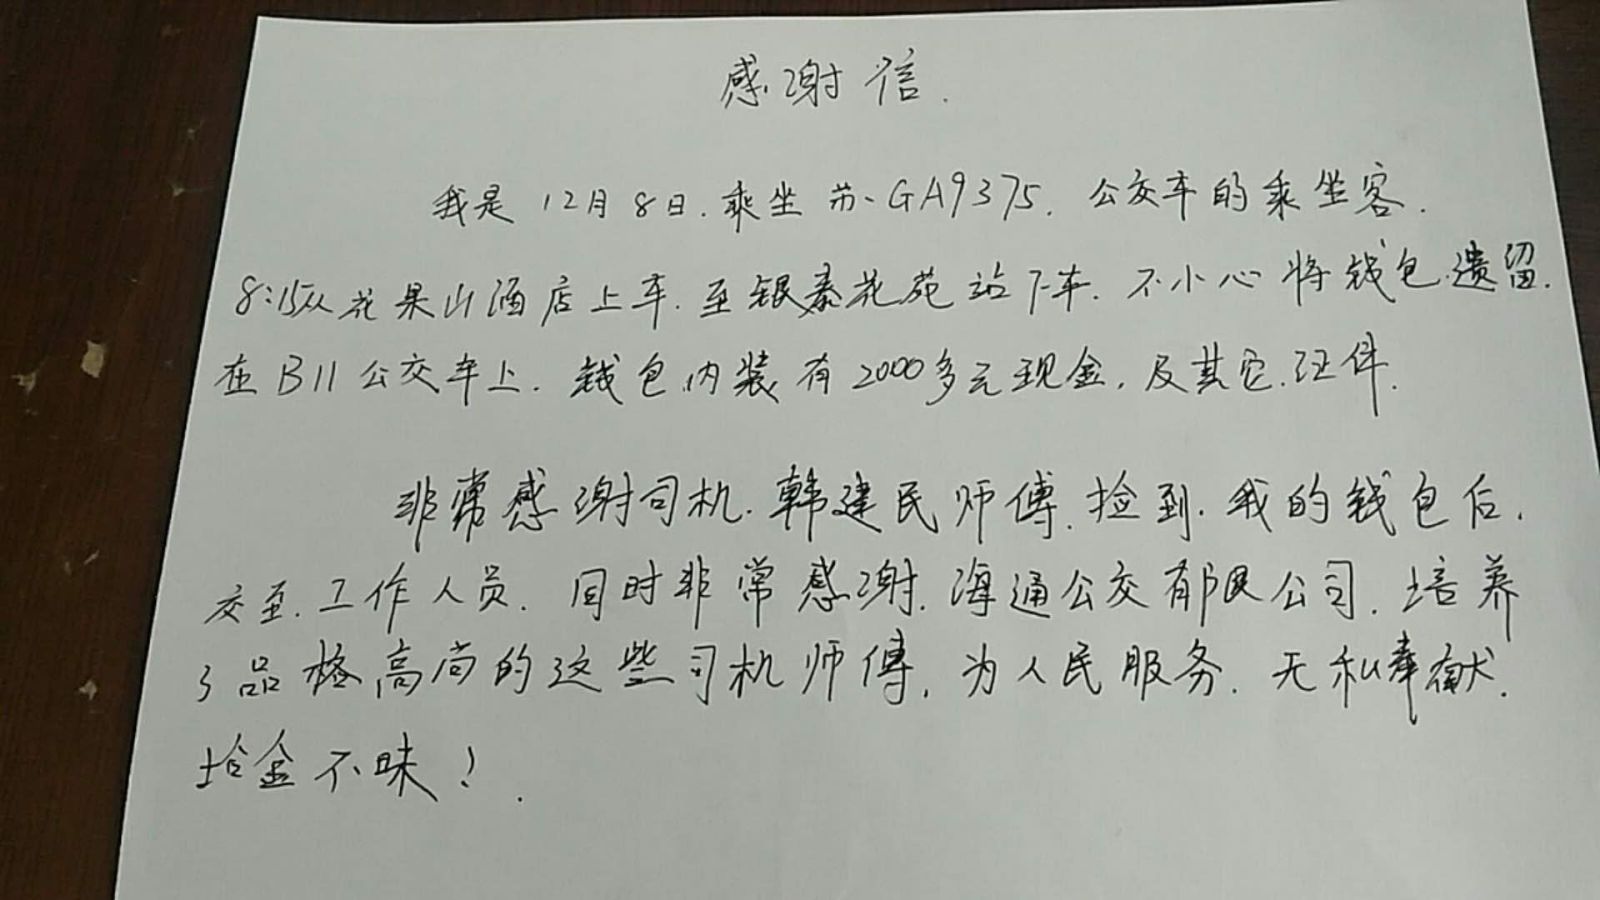 感谢信.
我是12月8日.乘坐苏·GA9375.公交车的乘坐客.
8:15从花果山酒店上车.至银泰花苑站下车.不小心将钱包遗留.
在B11公交车上.钱包内装有2000多元现金,及其它.证件.
非常感谢司机.韩建民师傅.捡到.我的钱包后.
交至.工作人员.同时非常感谢.海通公交有限公司.培养
了品格高尚的这些司机师傅,为人民服务.无私奉献.
拾金不昧!.